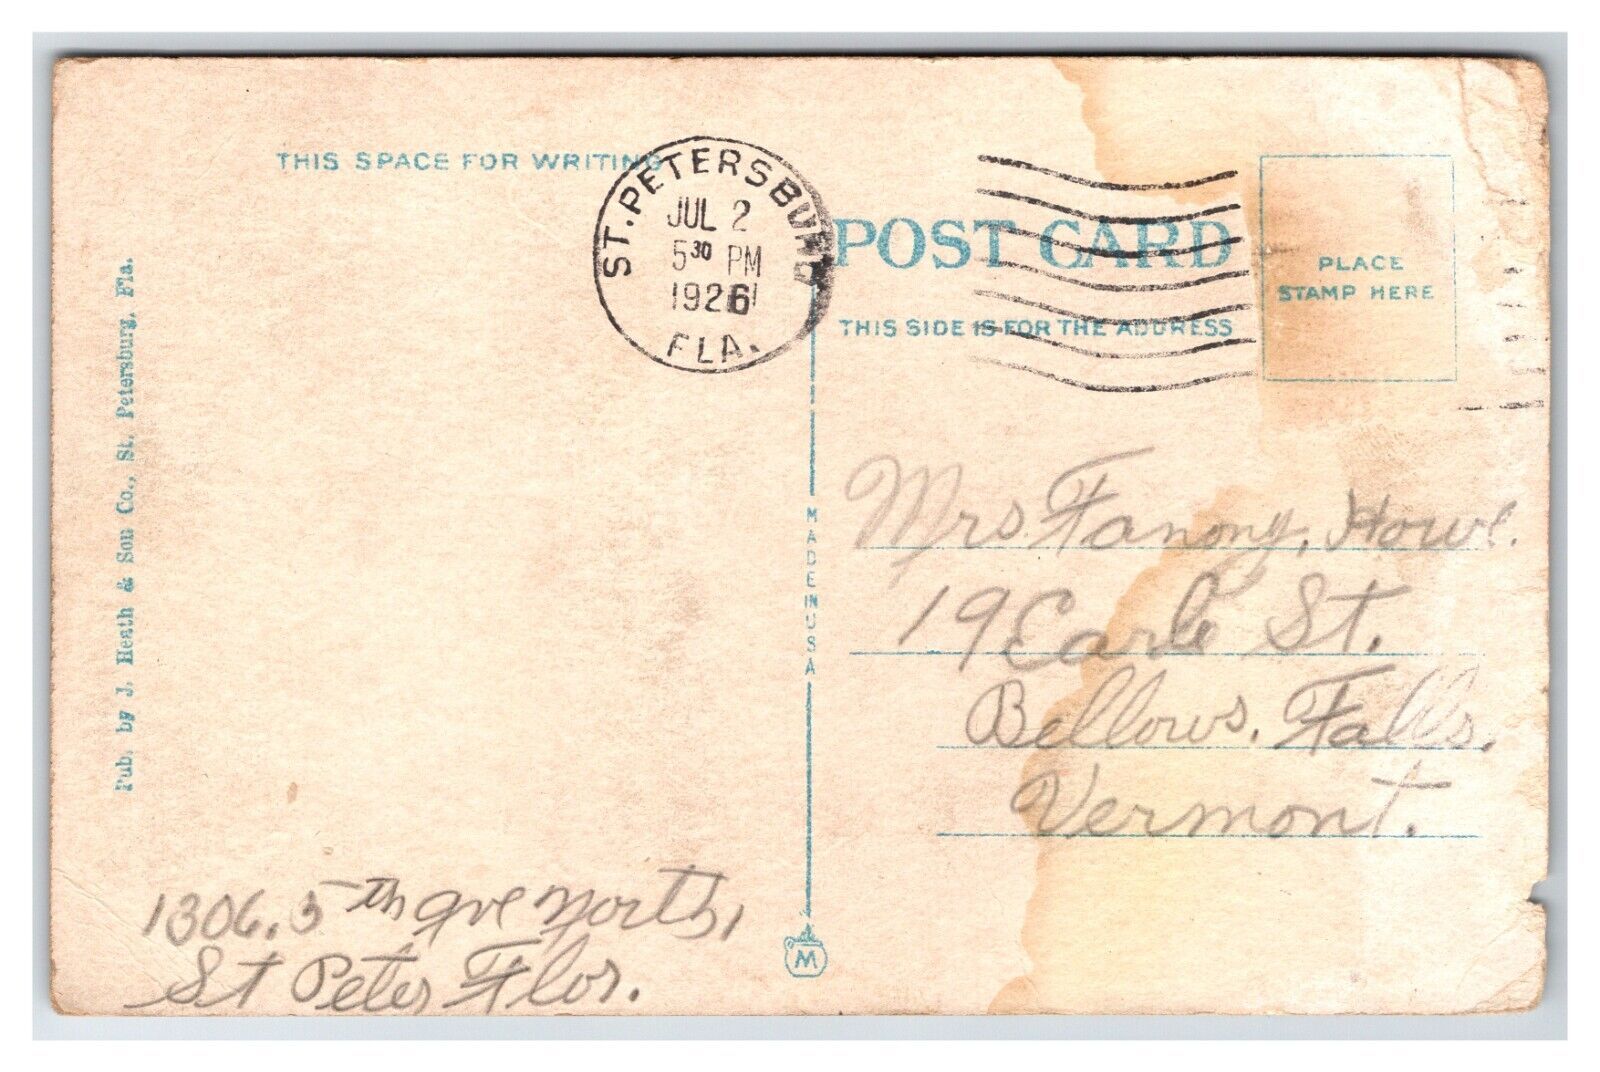 THIS SPACE FOR WRITING
ST. PETERSBURG
JUL 2
5 30 PM
1926
FLA.
POST CARD
THIS SIDE IS FOR THE ADDRESS
PLACE
STAMP HERE
Pub. by J. Heath & Son Co., St. Petersburg, Fla.
MADE IN USA
Mrs. Fanony, Howe.
19 Earle St.
Bellows. Falls.
Vermont.
1306. 5th ave North,
St Peters Flor.
M